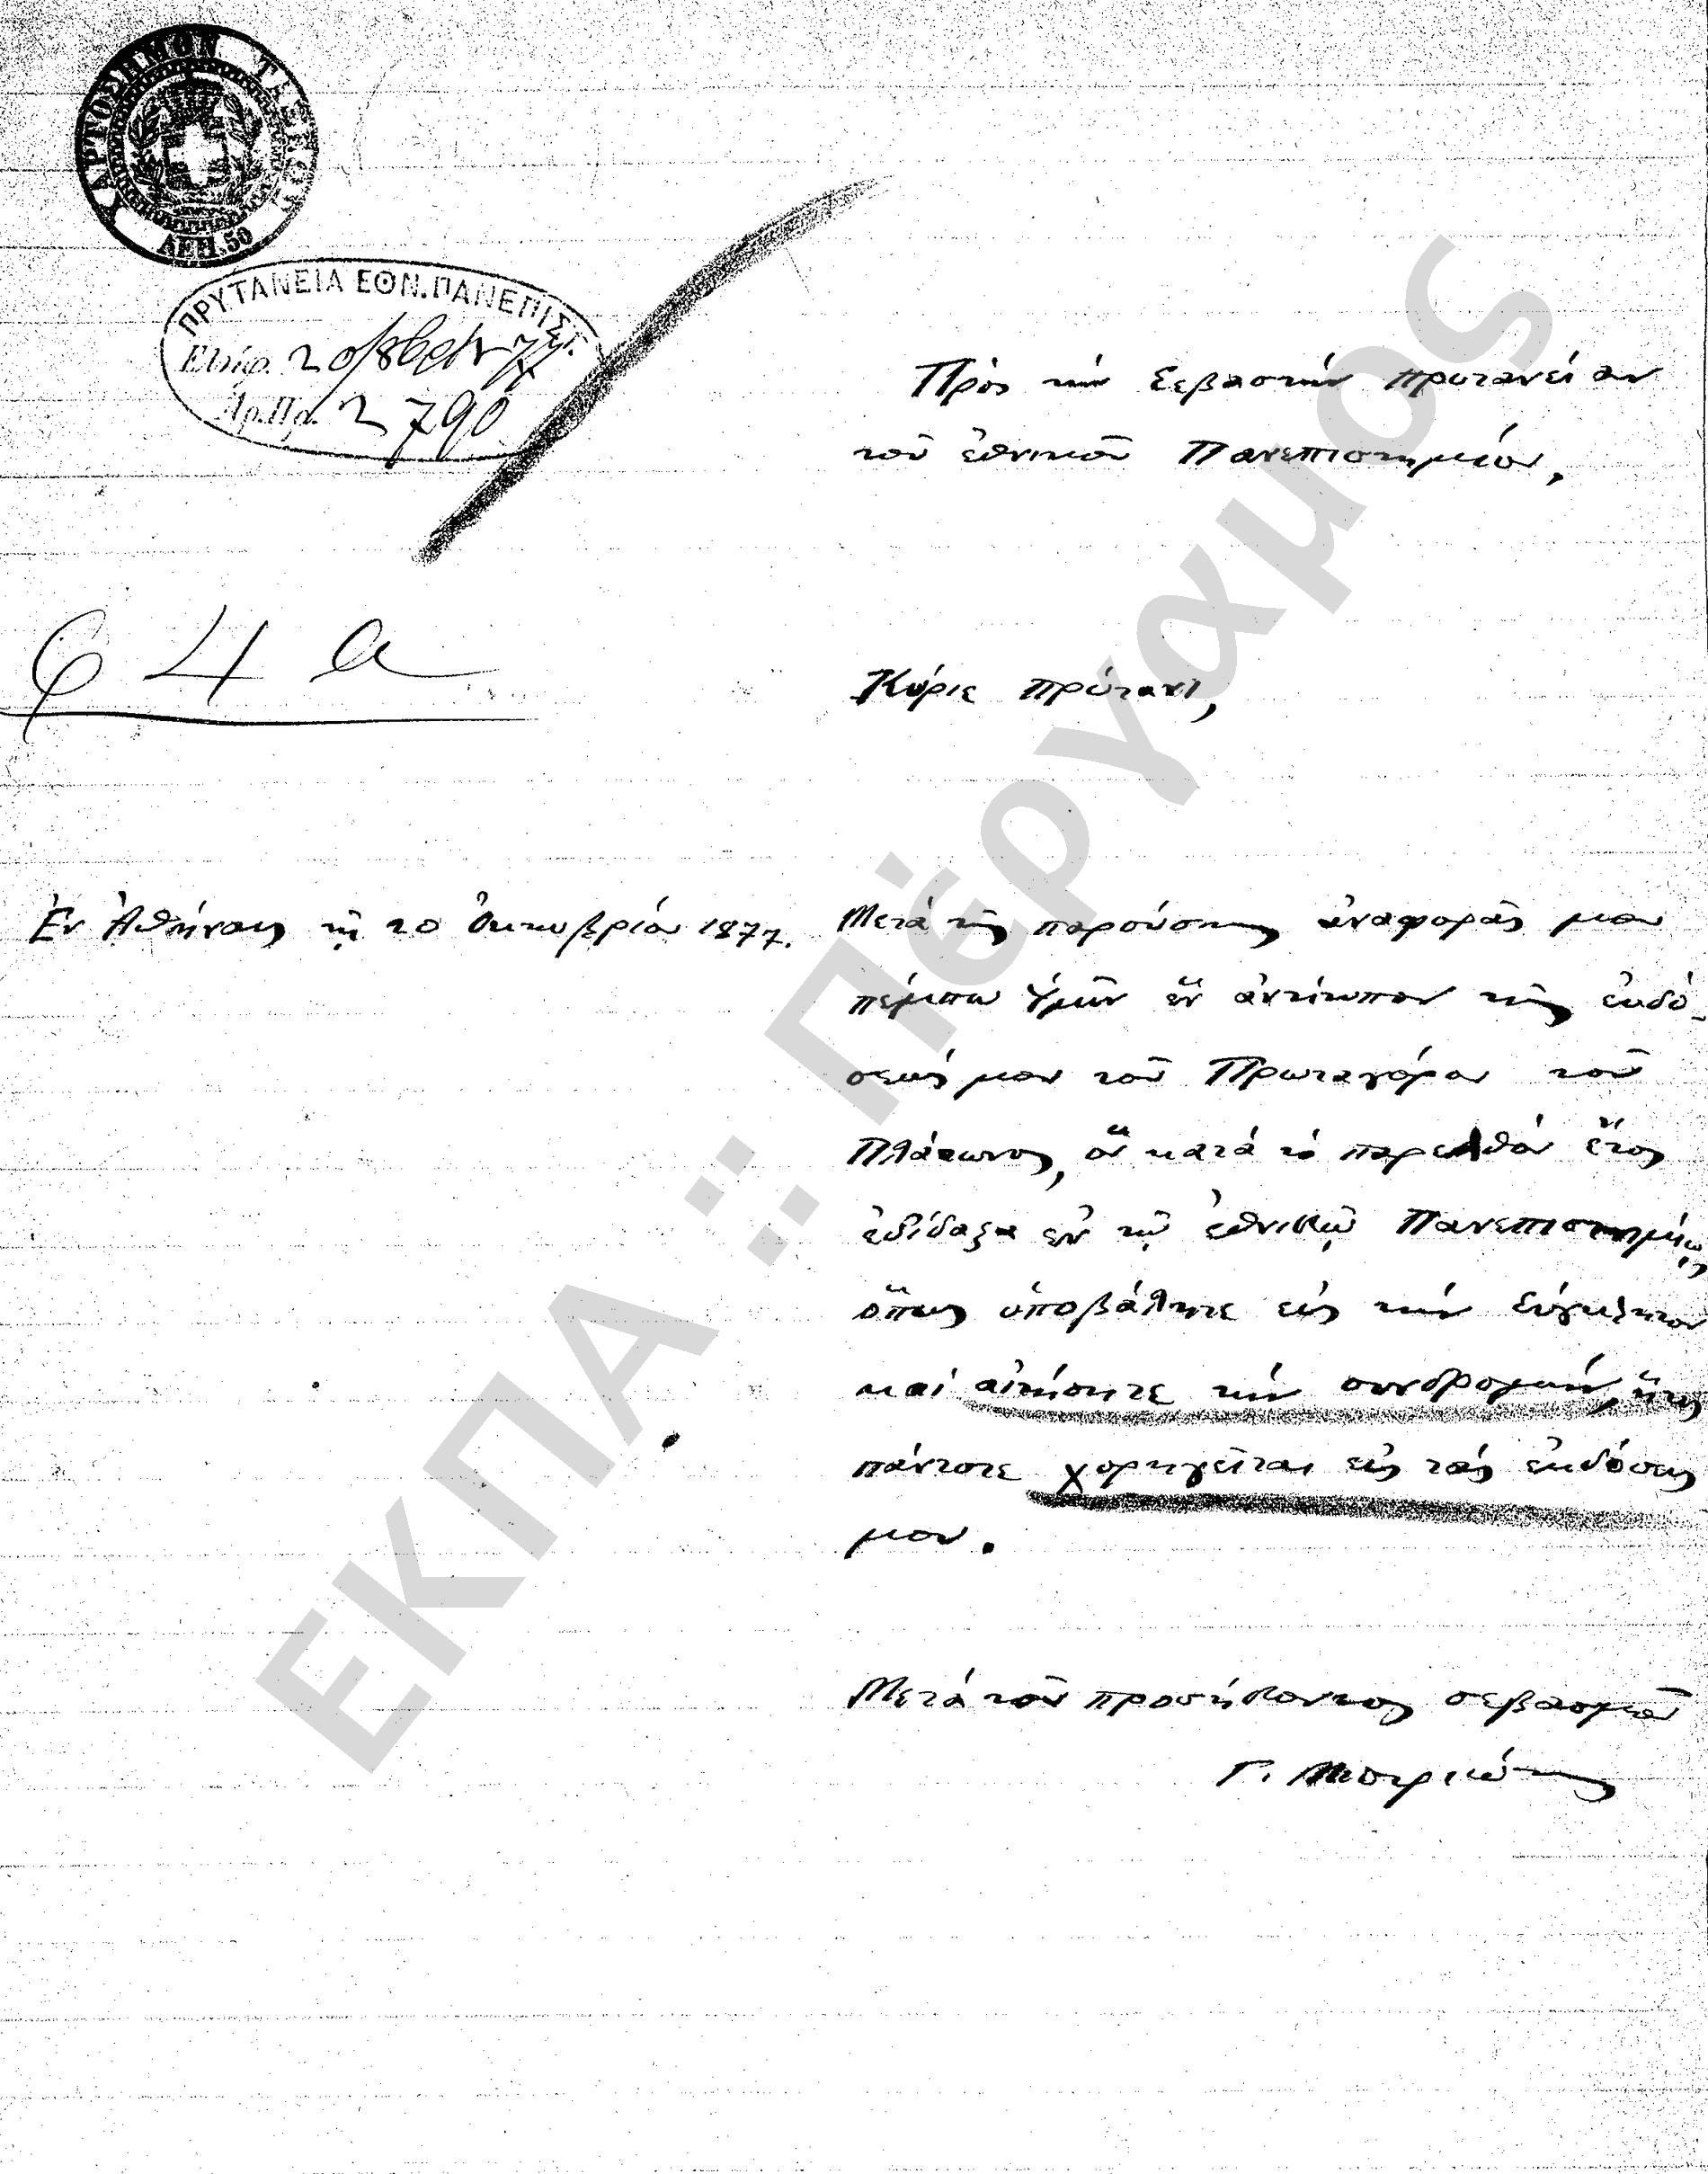 ΧΑΡΤΟΣΗΜΟΝ ΤΑΞΕΩΣ
ΛΕΠ. 50
ΠΡΥΤΑΝΕΙΑ ΕΘΝ. ΠΑΝΕΠΙΣΤ.
Ἐλήφ. 20/8βρίου 77
Ἀρ. Πρ. 2790
Πρὸς τὴν Σεβαστὴν πρυτανείαν
τοῦ ἐθνικοῦ Πανεπιστημίου,
φ 4 α
Κύριε πρύτανι,
Ἐν Ἀθήναις τῇ 20 Ὀκτωβρίου 1877.
Μετὰ τῆς παρούσης ἀναφορᾶς μου
πέμπω Ὑμῖν ἓν ἀντίτυπον τῆς ἐκδό-
σεώς μου τοῦ Πρωταγόρου τοῦ
Πλάτωνος, ὃν κατὰ τὸ παρελθὸν ἔτος
ἐδίδαξα ἐν τῷ ἐθνικῷ Πανεπιστημίῳ,
ὅπως ὑποβάλητε εἰς τὴν Σύγκλητον
καὶ αἰτήσητε τὴν συνδρομήν, ἥτις
πάντοτε χορηγεῖται εἰς τὰς ἐκδόσεις
μου.
Μετὰ τοῦ προσήκοντος σεβασμοῦ
Γ. Μιστριώτης
ΕΚΠΑ :: Πέργαμος